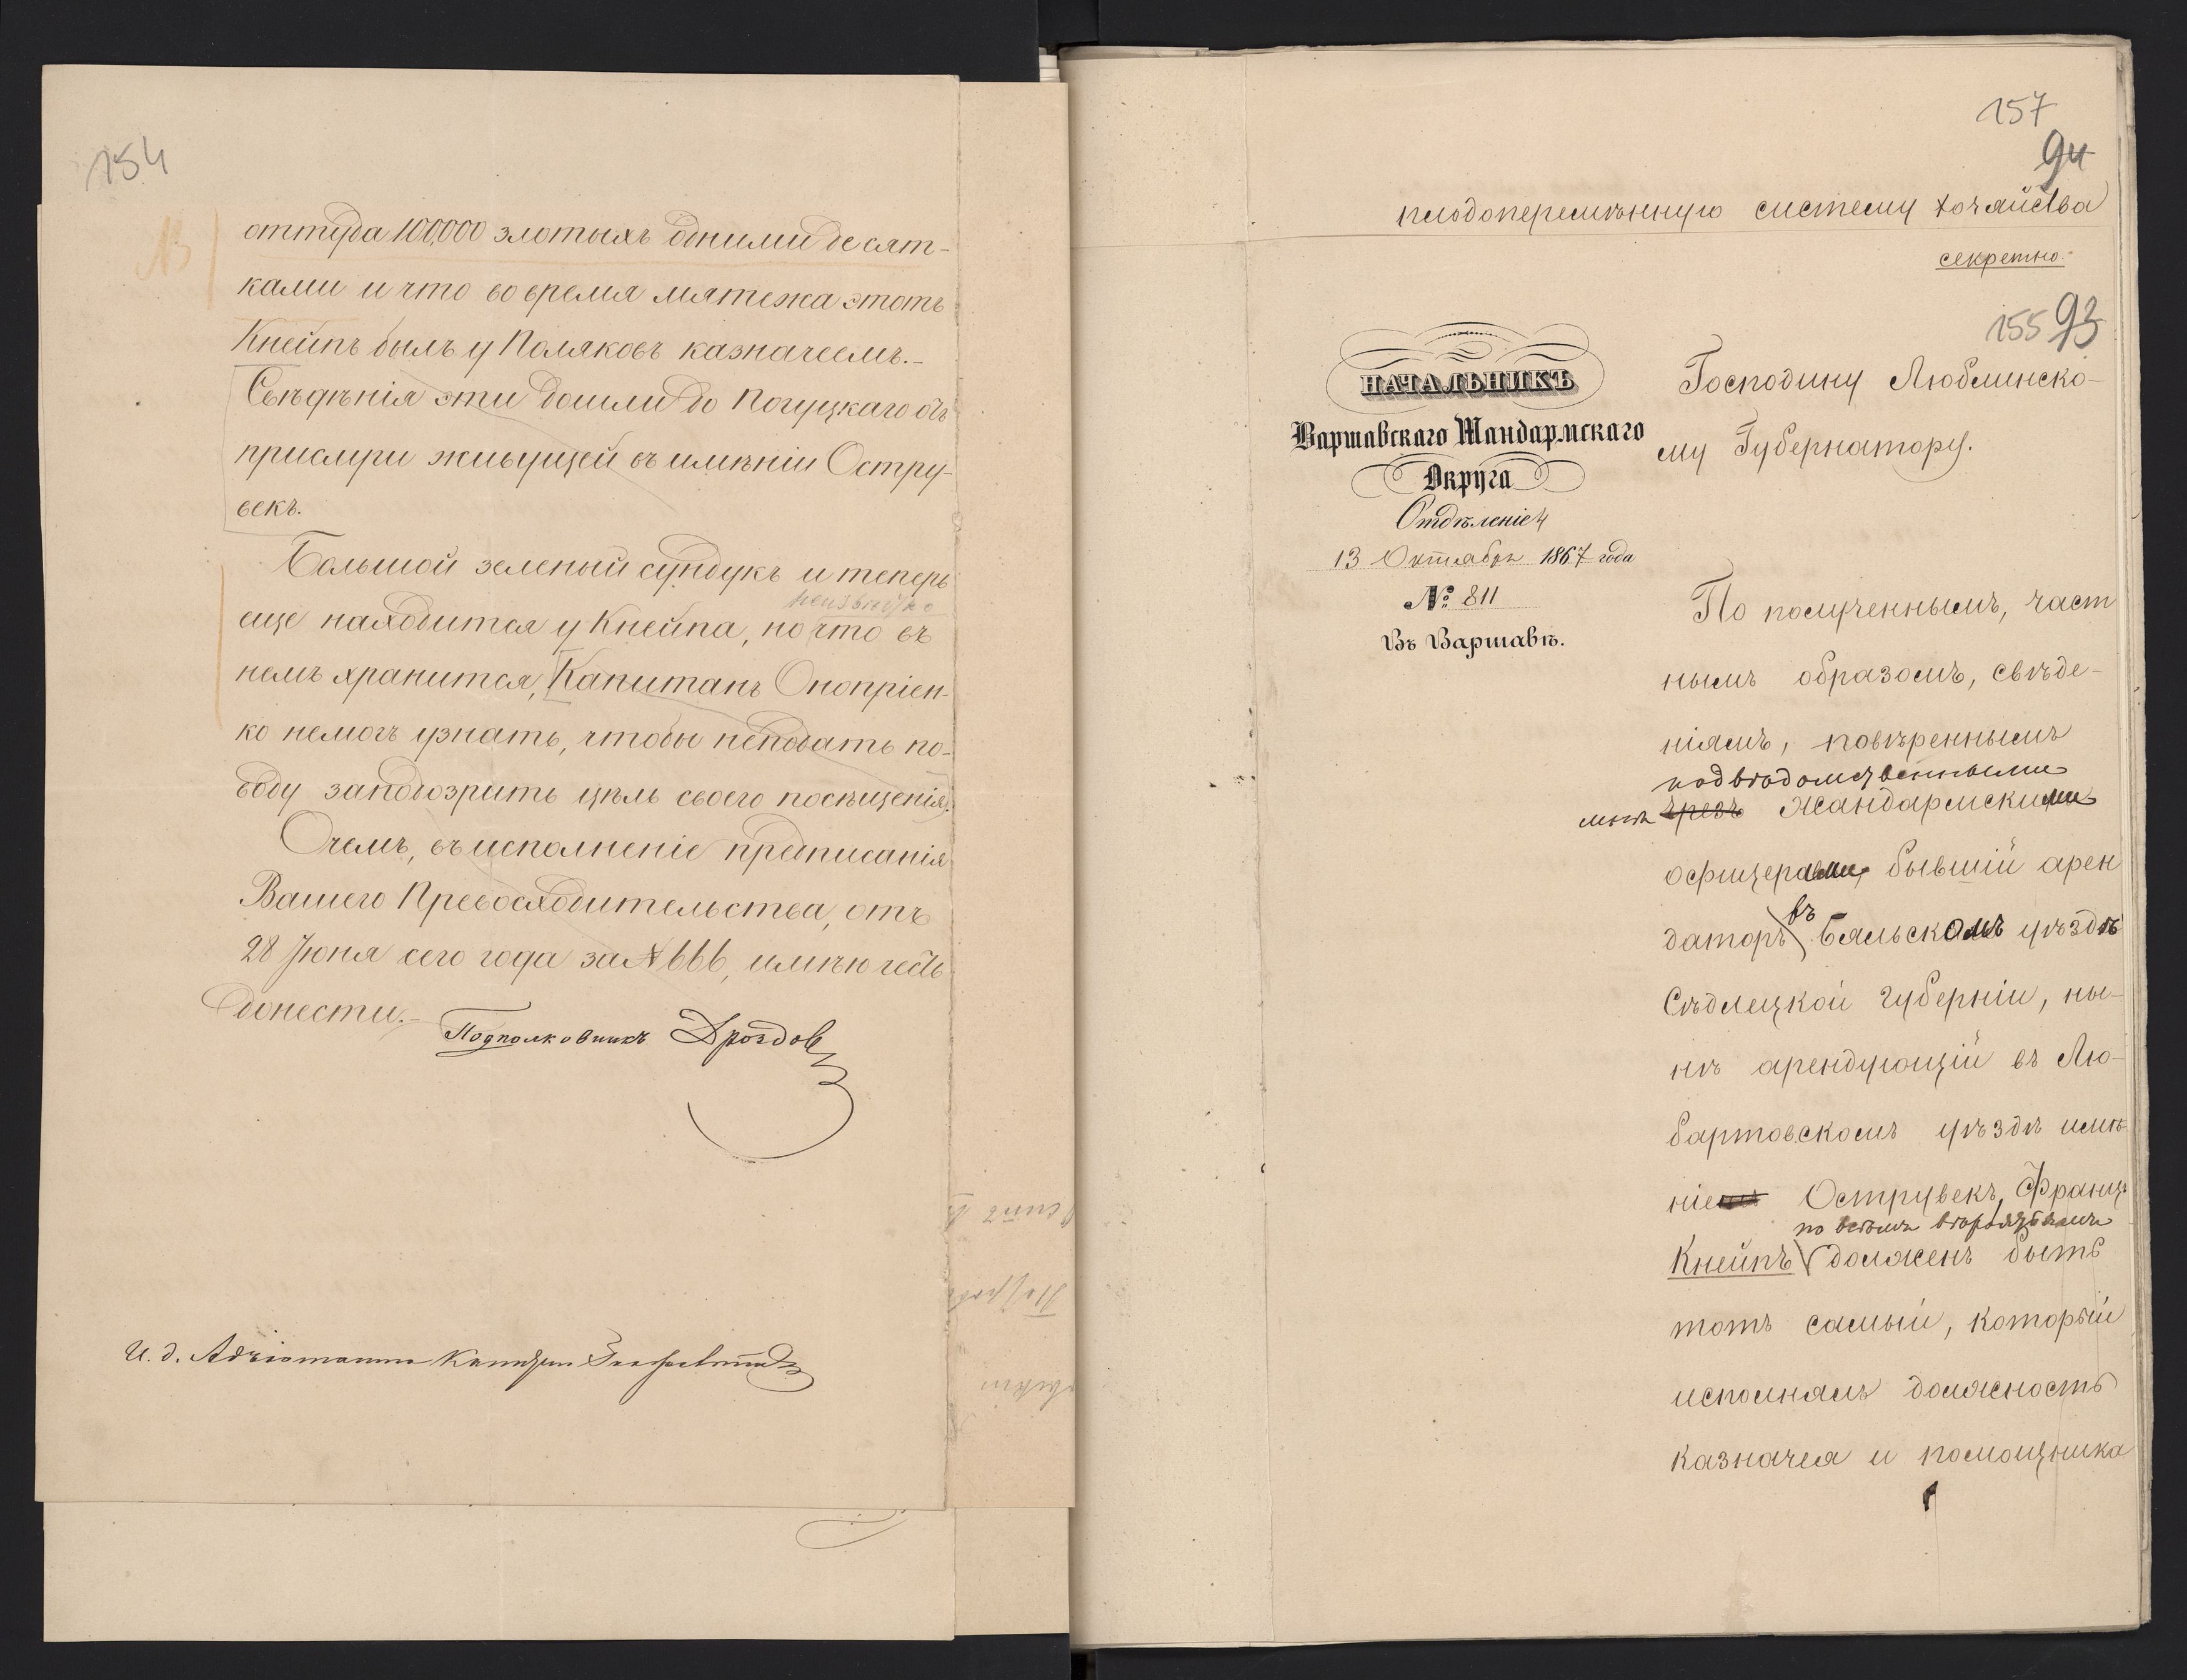 154
NB
оттуда 100,000 злотыхъ одними десят-
ками и что во время мятежа этотъ
Кнейпъ былъ у Поляковъ казначеемъ.-
Свѣдѣнія эти дошли до Погуцкаго отъ
прислуги живущей въ имѣніи Остру-
векъ.
Большой зеленый сундукъ и теперь
неизвѣстно
еще находится у Кнейпа, но что въ
немъ хранится, Капитанъ Оноприен-
ко немогъ узнать, чтобы неподать по-
воду заподозрить цѣль своего посѣщенія.
Очемъ, въ исполненіе предписанія
Вашего Превосходительства, отъ
28 Іюня сего года за № 666, имѣю честь
донести.-
Подполковникъ Дроздов
И. д. Адъютанта Капитан
157
94
плодоперемѣнную систему хозяйства
секретно.
155 93
НАЧАЛЬНИКЪ
Варшавскаго Жандармскаго
Округа
Отдѣленіе 4
13 Октября 1867 года
№ 811
Въ Варшавѣ.
Господину Люблинско-
му Губернатору.
По полученнымъ, част
нымъ образомъ, свѣде-
ніямъ, повѣреннымъ
подвѣдомственными
мнѣ чрезъ Жандармскими
офицерами, бывшій арен
даторъ въ Бяльскомъ уѣздѣ
Сѣдлецкой губерніи, ны-
нѣ арендующій въ Лю-
бартовскомъ уѣздѣ имѣ-
ніе Острувекъ, Франц
по всѣмъ вѣроятіямъ
Кнейпъ должен быть
тотъ самый, который
исполнялъ должность
казначея и помощника